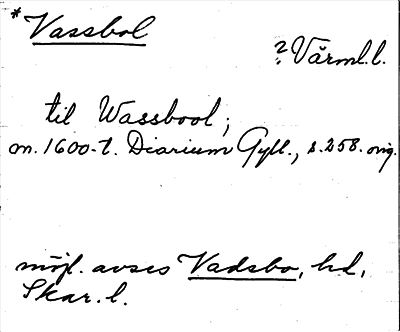 *Vassbol
? Värml.l.
til Wassbool;
m. 1600-t. Diarium Gyll., s. 258. orig.
möjl. avses Vadsbo, hd,
Skar. l.